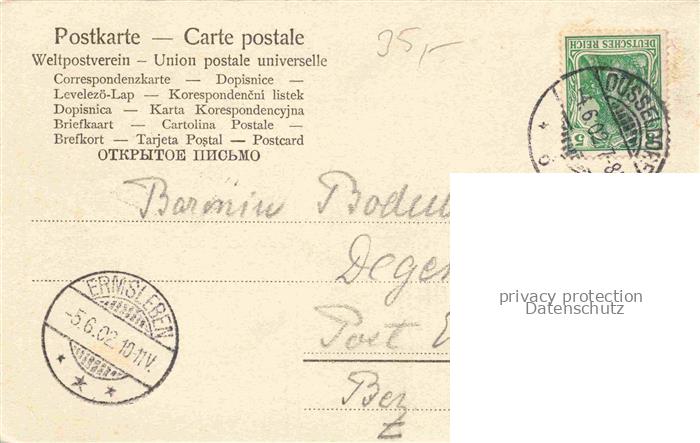 Postkarte — Carte postale
Weltpostverein — Union postale universelle
Correspondenzkarte — Dopisnice —
Levelező-Lap — Korespondenční listek
Dopisnica — Karta Korespondencyjna
Briefkaart — Cartolina Postale —
Brefkort — Tarjeta Poştal — Postcard
ОТКРЫТОЕ ПИСЬМО
35,-
DEUTSCHES REICH
5
DÜSSELDORF
4.6.02 7-8
Baronin Boden
Degen
Post E
Bez
ERMSLEBEN
-5.6.02.10-11V.
privacy protection
Datenschutz